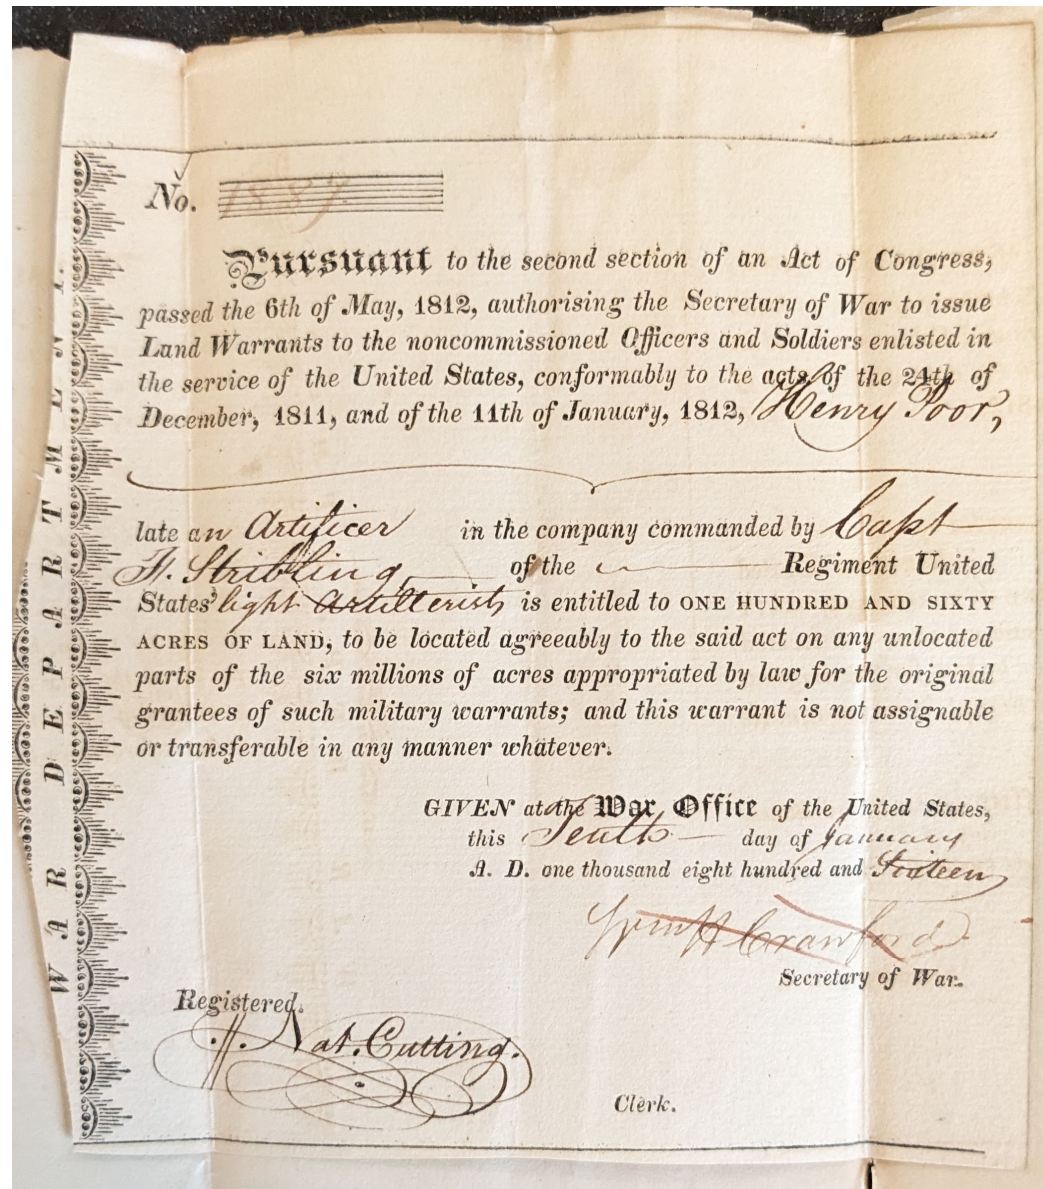 No. 1887.
Pursuant to the second section of an Act of Congress,
passed the 6th of May, 1812, authorising the Secretary of War to issue
Land Warrants to the noncommissioned Officers and Soldiers enlisted in
the service of the United States, conformably to the acts of the 24th of
December, 1811, and of the 11th of January, 1812, Henry Poor,
late an Artificer in the company commanded by Capt
F. Stribling, of the Regiment United
States' light Artillerists is entitled to ONE HUNDRED AND SIXTY
ACRES OF LAND, to be located agreeably to the said act on any unlocated
parts of the six millions of acres appropriated by law for the original
grantees of such military warrants; and this warrant is not assignable
or transferable in any manner whatever.
GIVEN at the War Office of the United States,
this Tenth day of January
A. D. one thousand eight hundred and Sixteen
Wm H Crawford
Secretary of War.
Registered.
Nat. Cutting.
Clerk.
WAR DEPARTMENT.